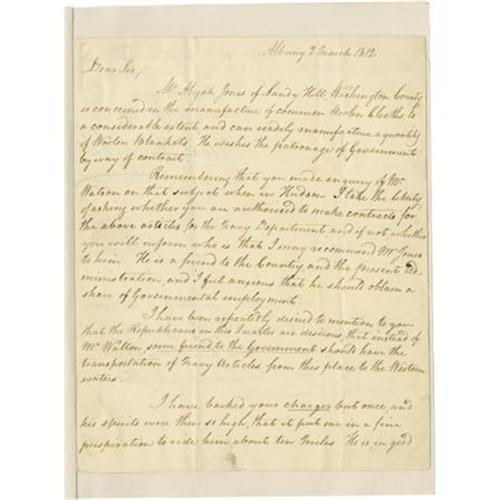 Albany 2 March 1812
Dear Sir,
Mr Abijah Jones of Sandy Hill, Washington County
is concerned in the manufacture of common Woolen Cloths to
a considerable extent and can readily manufacture a quantity
of Woolen Blankets. He wishes the patronage of Government
by way of contract.
Remembering that you made enquiry of Mr
Watson on that subject when in Hudson I take the liberty
of asking whether you are authorised to make contracts for
the above articles for the Navy Department and if not whether
you will inform who is that I may recommend Mr Jones
to him. He is a friend to the Country and the present Ad-
ministration, and I feel anxious that he should obtain a
share of Governmental employment.
I have been repeatedly desired to mention to you
that the Republicans in this quarter are desirous that instead of
Mr Walton, some friend to the Government should have the
transportation of Navy Articles from this place to the Western
waters.
I have backed your charger but once, and
his spirits were then so high, that it put me in a fine
perspiration to ride him about ten Miles. He is in good